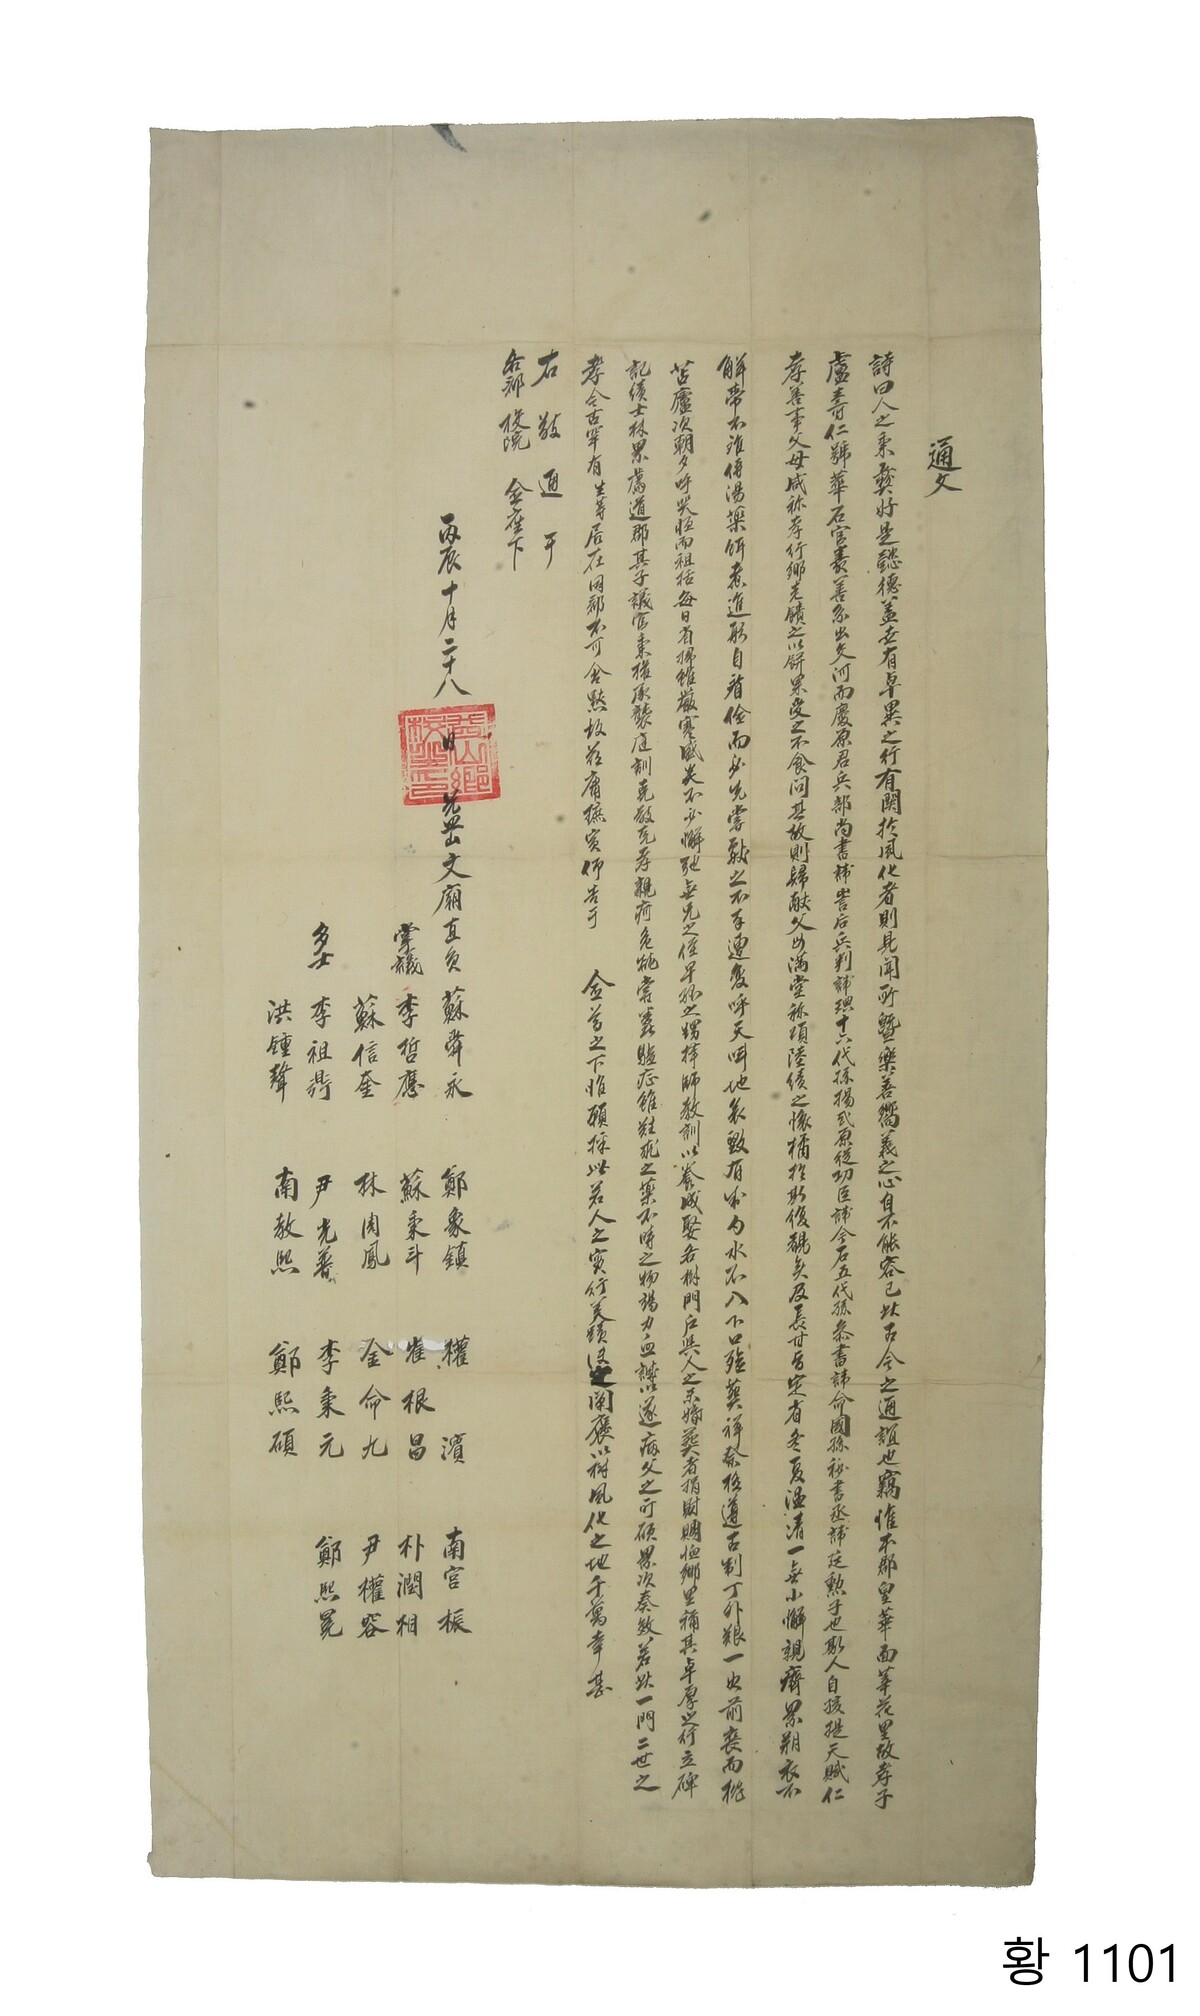 通文
詩曰人之秉彝好是懿德盖世有卓異之行有關於風化者則見聞所曁樂善嚮義之心自不能容已此古今之通誼也竊惟本郡皇華面華花里故孝子
盧壽仁號華石官嘉善系出交河而慶原君兵部尚書諱 后兵判諱 十六代孫揚武原從功臣諱今石五代孫參書諱命國孫祕書丞諱廷勲子也取人自孩提天賦仁
孝善事父母咸称孝行鄉老饋之以餠果受之不食問其故則歸献父母满堂称頌陸績之懷橘於斯復覩矣及長甘旨定省冬夏温凊一無小懈親癠累朔衣不
解帶不離侍湯藥餌煮進 自 而必先嘗 之不幸遭変呼天叫地 致有 勺水不入口殮葬祥祭極遵古制丁外艱一如前喪而
苫廬次朝夕呼哭 而袒括每日省掃雖嚴寒盛炎不少懈弛 兄之侄早孤之甥擇師教訓以養成娶各樹門戶與人之未婚葬者捐財賙恤鄉里稱其卓厚之行立碑
記績士林累薦道郡其子議官秉 承襲庭訓克敬克孝親疴危 嘗糞驗症雖難 之藥不時之物竭力血誠以遂病父之所願累次奏效若此一門二世之
孝今古罕有生等居在同郡不可含黙故玆庸摭實仰告于 僉尊之下惟願採此若人之實行美蹟 闡褒以樹風化之地千萬幸甚
右敬通于
各郡校院 僉座下
丙辰十月二十八日 文廟直員 蘇舜永 鄭象鎭 權 濱 南宮振
掌議 李哲應 蘇秉斗 崔根昌 朴潤相
蘇信奎 林周鳳 金命九 尹權容
多士 李祖 尹光普 李秉元 鄭熙冕
洪鍾聲 南敎熙 鄭熙碩
황 1101